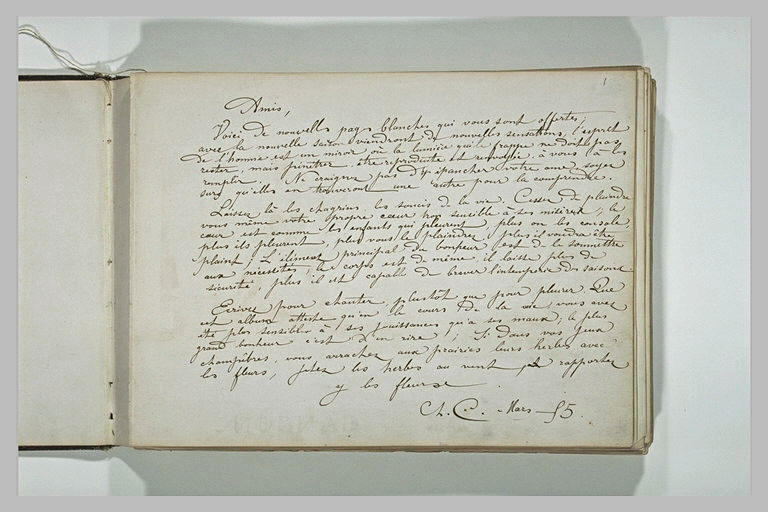 1
Amis,
Voici de nouvelles pages blanches qui vous sont offertes;
avec la nouvelle saison viendront de nouvelles sensations, l'esprit
de l'homme est un miroir où la lumière qui le frappe ne doit pas y
rester, mais pénétrer, être reproduite et renvoyée, à vous à les
remplir. Ne craignez pas d'y épancher votre ame, soyez
surs qu'elles en trouveront une autre pour la comprendre.
Laissez là les chagrins, les soucis de la vie. Cessez de plaindre
vous même votre propre cœur trop sensible à ses misères; le
cœur est comme les enfants qui pleurent, plus on les console,
plus ils pleurent, plus vous le plaindrez, plus il voudra être
plaint; L'élément principal du bonheur est de le soumettre
aux nécessités, le corps est de même, il laisse plus de
sécurité, plus il est capable de braver l'intempérie des saisons.
Ecrivez pour chanter, plustôt que pour pleurer. Que
cet album atteste qu'en le cours de la vie, vous avez
été plus sensible à ses jouissances qu'à ses maux; le plus
grand bonheur c'est d'en rire; Si dans vos jeux
champêtres, vous arrachez aux prairies leurs herbes avec
les fleurs, jetez les herbes au vent, et rapportez
y les fleurs
Ch. C. Mars 55.